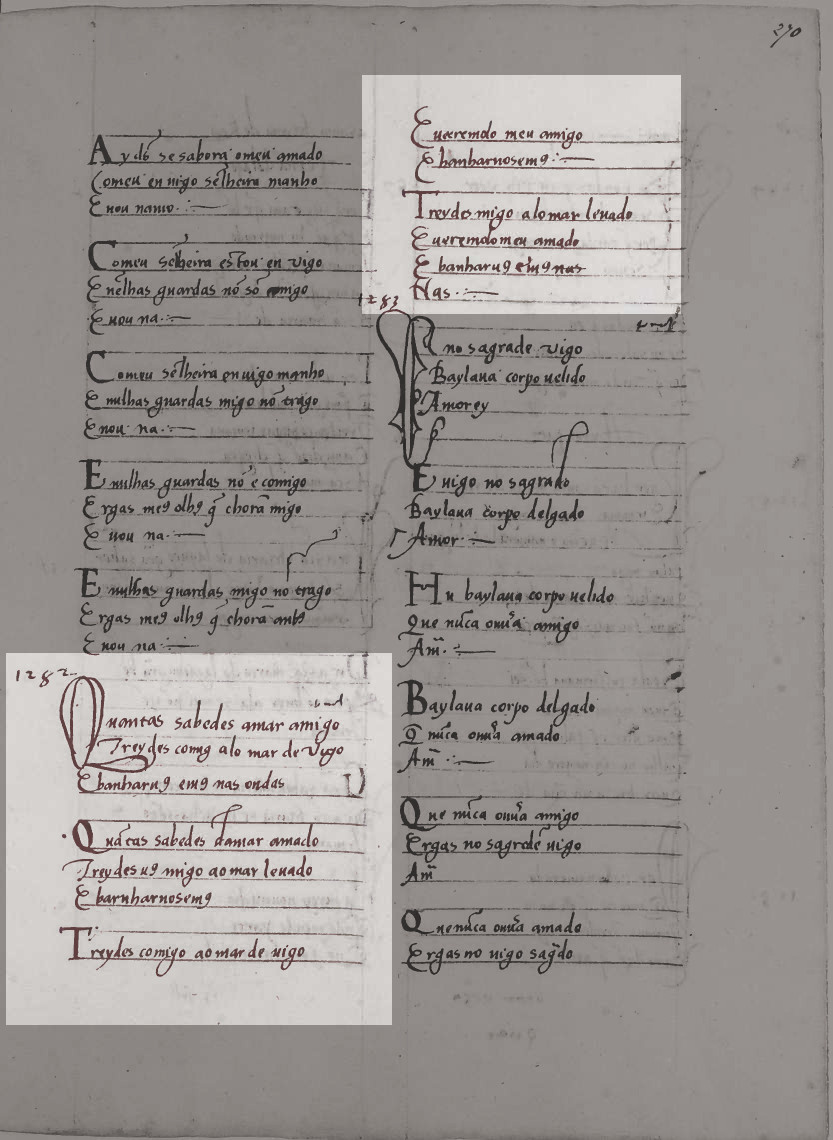 270
Ay ds̄ se sabora omeu amado
Comeu en uigo sēlheira manho
E uou namo.
Comeu sēlheira estou en vigo
E nēlhas guardas nō sō comigo
E uou na.
Comeu sēlheira en uigo manho
E nulhas guardas migo nō trago
E uou na.
E nulhas guardas nō e comigo
Ergas me9 olh9 q̄ chorā migo
E uou na.
E nulhas guardas migo nō trago
Ergas me9 olh9 q̄ chorā anb9
E uou na
1282
Quantas sabedes amar amigo
Treydes comig alo mar de vigo
E banharu9 em9 nas ondas
Quātas sabedes damar amado
Treydes u9 migo ao mar leuado
E barnharnosem9
Treydes comigo ao mar de uigo
E ueeremolo meu amigo
E banharnosem9
Treydes migo alo mar leuado
E ueremolo meu amado
E banharu9 em9 nas
Nas.
1283
no sagrade vigo
Baylaua corpo uelido
Amorey
E uigo no sagrado
Baylaua corpo delgado
Amor
Hu baylaua corpo uelido
Que nūca ouu̾a amigo
Am̄.
Baylaua corpo delgado
Q nūca ouu̾a amado
Am̄
Que nūca ouu̾a amigo
Ergas no sagradē uigo
Am̄
Que nūca ouu̾a amado
Ergas no uigo sag̾do